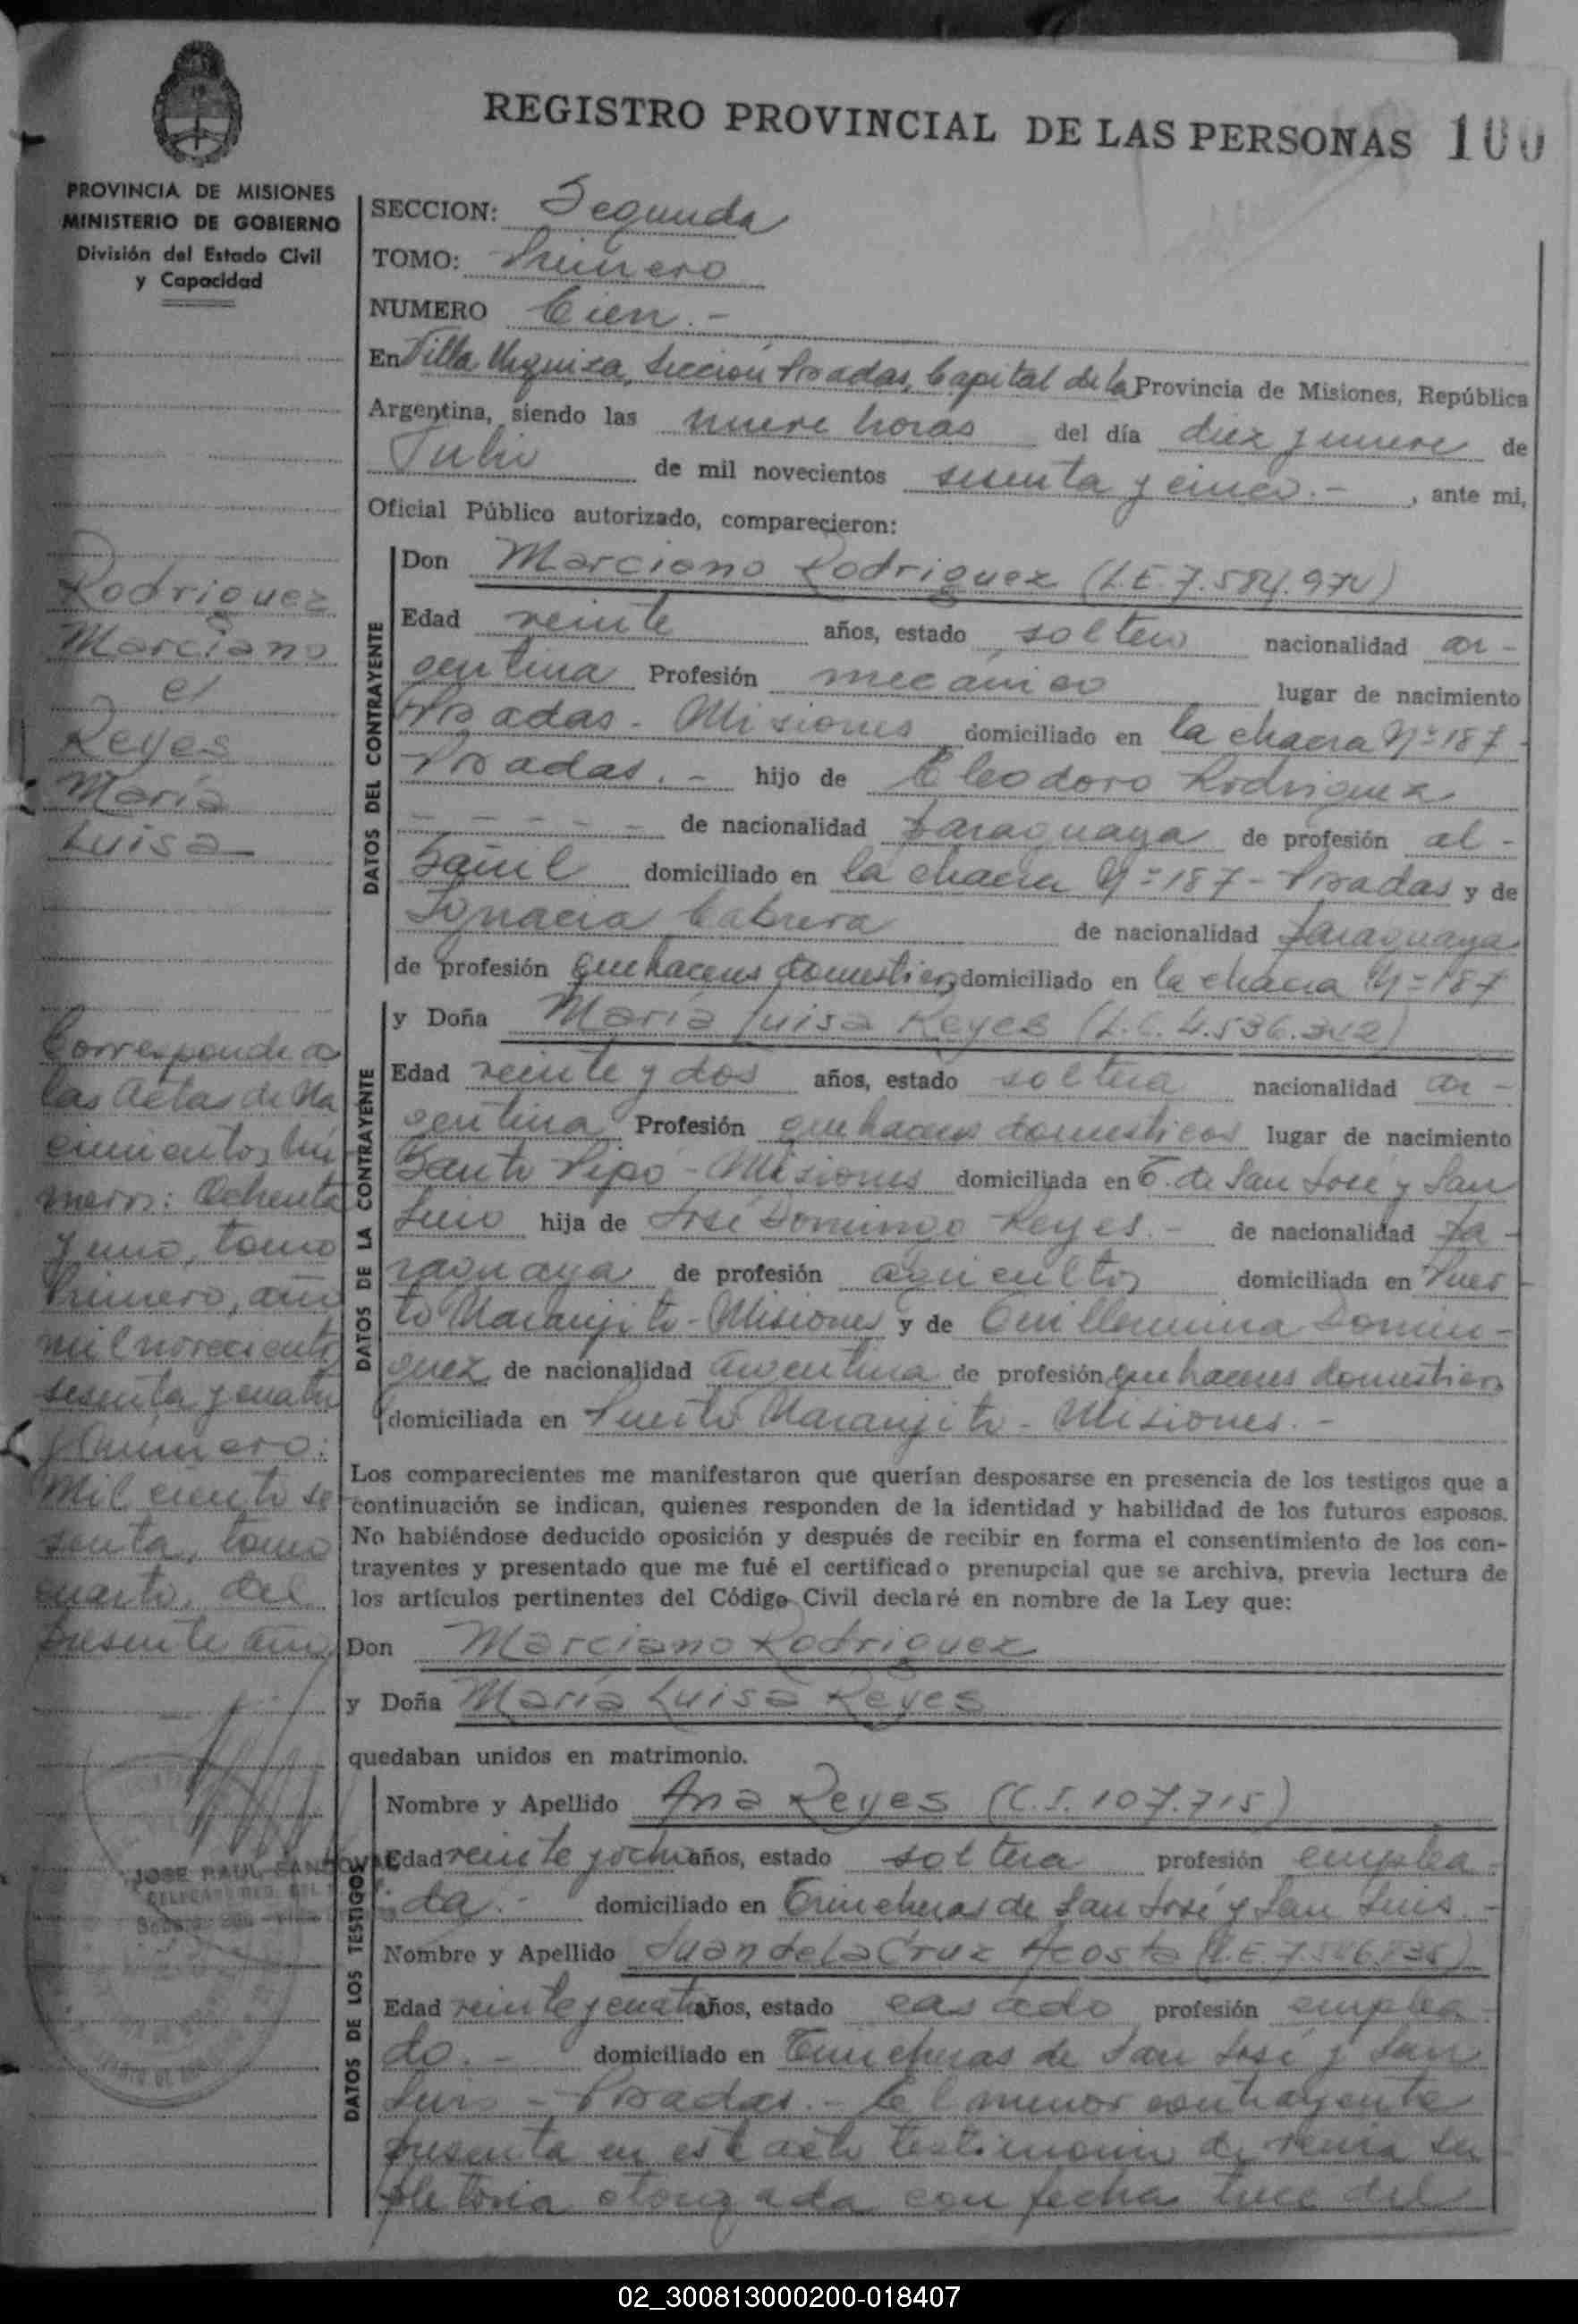 REGISTRO PROVINCIAL DE LAS PERSONAS 100
PROVINCIA DE MISIONES
MINISTERIO DE GOBIERNO
División del Estado Civil
y Capacidad
SECCION: Segunda
TOMO: Primero
NUMERO Cien.-
En Villa Urquiza, Sección Posadas, Capital de la Provincia de Misiones, República
Argentina, siendo las nueve horas del día diez y nueve de
Julio de mil novecientos sesenta y cinco.-, ante mi,
Oficial Público autorizado, comparecieron:
Rodriguez
Marciano
c/
Reyes
María
Luisa
DATOS DEL CONTRAYENTE
Don Marciano Rodriguez (L.E. 7.584.974)
Edad veinte años, estado soltero nacionalidad ar-
gentina Profesión mecánico lugar de nacimiento
Posadas - Misiones domiciliado en la chacra Nº 187 -
Posadas.- hijo de Eleodoro Rodriguez
- - - - - - de nacionalidad paraguaya de profesión al-
bañil domiciliado en la chacra Nº 187 - Posadas y de
Ignacia Cabrera de nacionalidad paraguaya
de profesión quehaceres domesticos domiciliado en la chacra Nº 187
Corresponde a
las Actas de Na
cimientos nú
meros: Ochenta
y uno, tomo
Primero, año
mil novecientos
sesenta y cuatro
y número:
Mil ciento se
senta, tomo
cuarto, del
presente año
DATOS DE LA CONTRAYENTE
y Doña María Luisa Reyes (L.C. 4.536.342)
Edad veinte y dos años, estado soltera nacionalidad ar-
gentina Profesión quehaceres domesticos lugar de nacimiento
Santo Pipó - Misiones domiciliada en T. de San José y San
Luis hija de José Domingo Reyes.- de nacionalidad pa-
raguaya de profesión agricultor domiciliada en Puer-
to Naranjito - Misiones y de Guillermina Domin-
guez de nacionalidad argentina de profesión quehaceres domesticos
domiciliada en Puerto Naranjito - Misiones.-
Los comparecientes me manifestaron que querían desposarse en presencia de los testigos que a
continuación se indican, quienes responden de la identidad y habilidad de los futuros esposos.
No habiéndose deducido oposición y después de recibir en forma el consentimiento de los con-
trayentes y presentado que me fué el certificado prenupcial que se archiva, previa lectura de
los artículos pertinentes del Código Civil declaré en nombre de la Ley que:
Don Marciano Rodriguez
y Doña María Luisa Reyes
quedaban unidos en matrimonio.
JOSE RAUL SANDOVAL
DATOS DE LOS TESTIGOS
Nombre y Apellido Ana Reyes (C.I. 107.715)
Edad veinte y ocho años, estado soltera profesión emplea-
da.- domiciliado en Trincheras de San José y San Luis.-
Nombre y Apellido Juan de la Cruz Acosta (L.E. 7.546.835)
Edad veinte y cuatro años, estado casado profesión emplea-
do.- domiciliado en Trincheras de San José y San
Luis - Posadas.- El menor contrayente
presenta en este acto testimonio de venia su
pletoria otorgada con fecha trece del
02_300813000200-018407